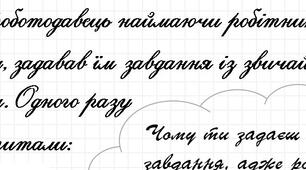 роботодавець наймаючи робітник
, задавав їм завдання із звичай
. Одного разу
питали:
Чому ти задаєш
завдання, адже ро